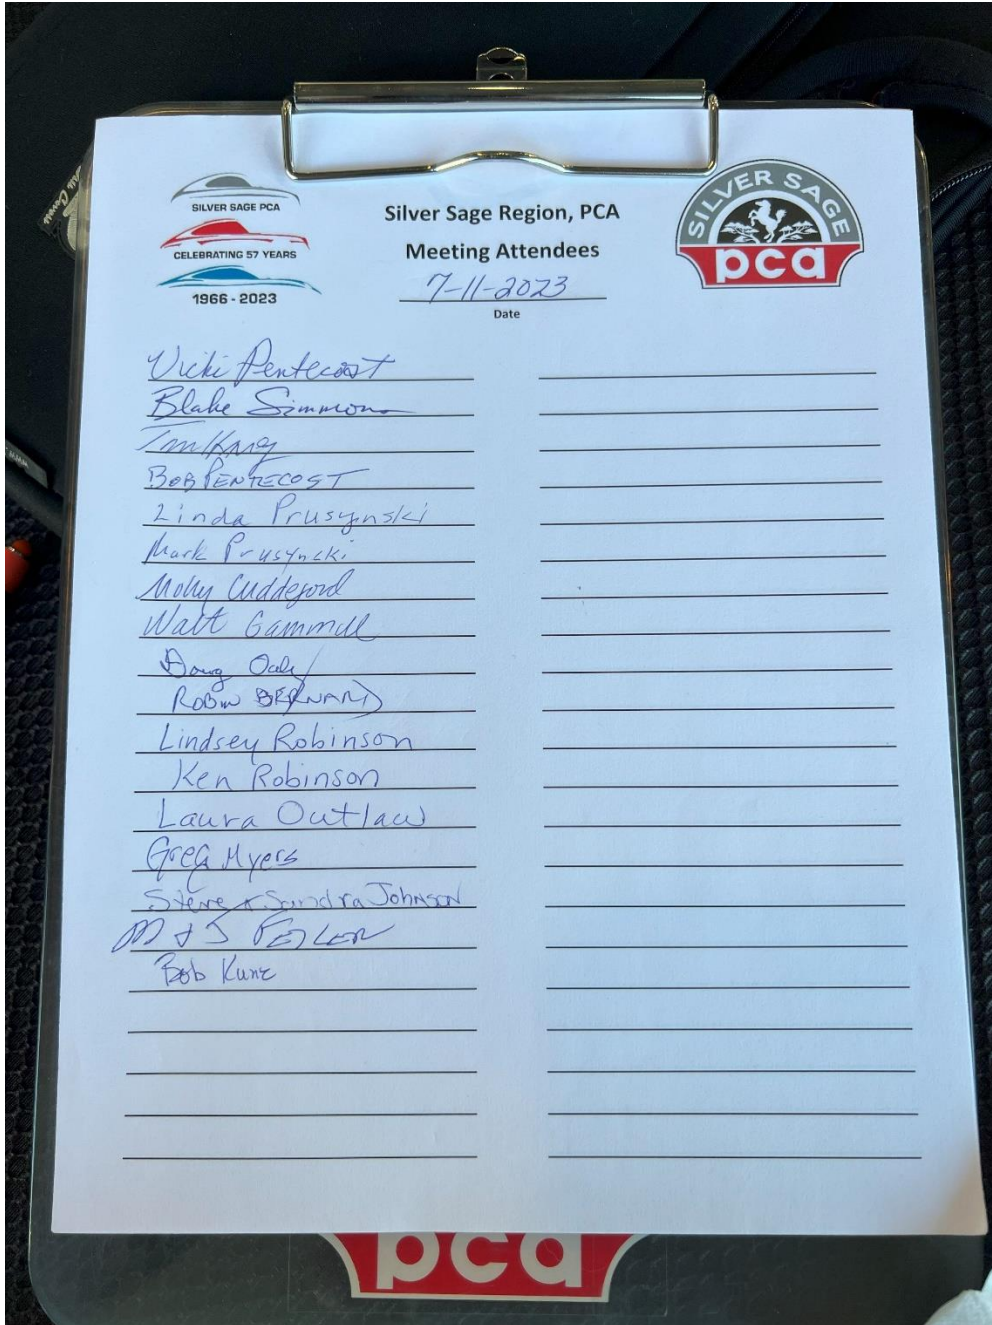 SILVER SAGE PCA
CELEBRATING 57 YEARS
1966 - 2023
Silver Sage Region, PCA
Meeting Attendees
7-11-2023
Date
SILVER SAGE
pca
Vicki Pentecost
Blake Simmons
BOB PENTECOST
Linda Prusynski
Mark Prusynski
Molly Cuddeford
Walt Gammill
Doug
ROBIN BERNARD
Lindsey Robinson
Ken Robinson
Laura Outlaw
Greg Myers
Steve & Sandra Johnson
M & J
Bob Kunz
pca